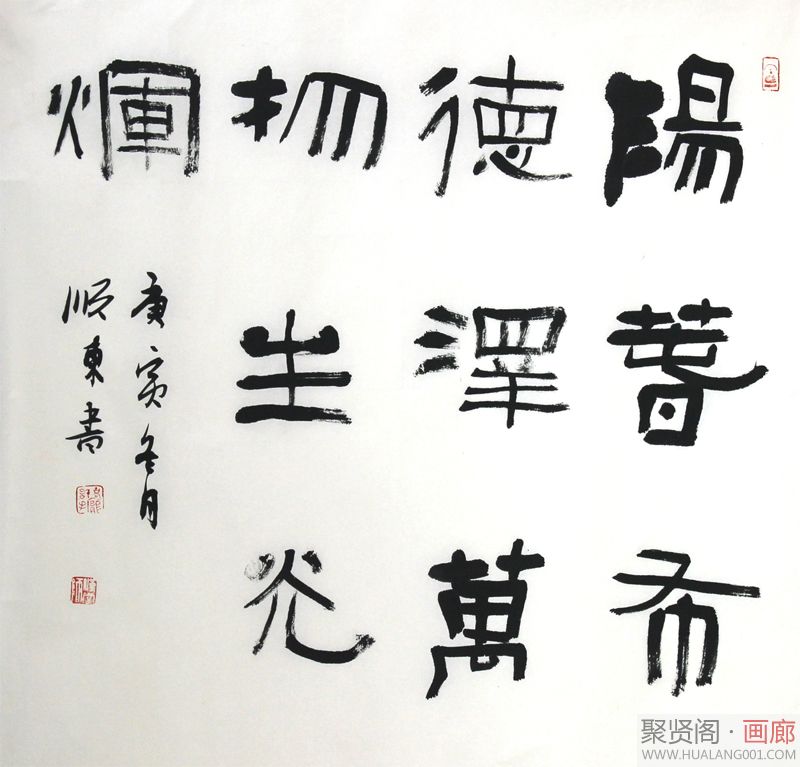 陽春布
德澤萬
物生光
煇
庚寅冬月
順東書
聚贤阁·画廊
WWW.HUALANG001.COM